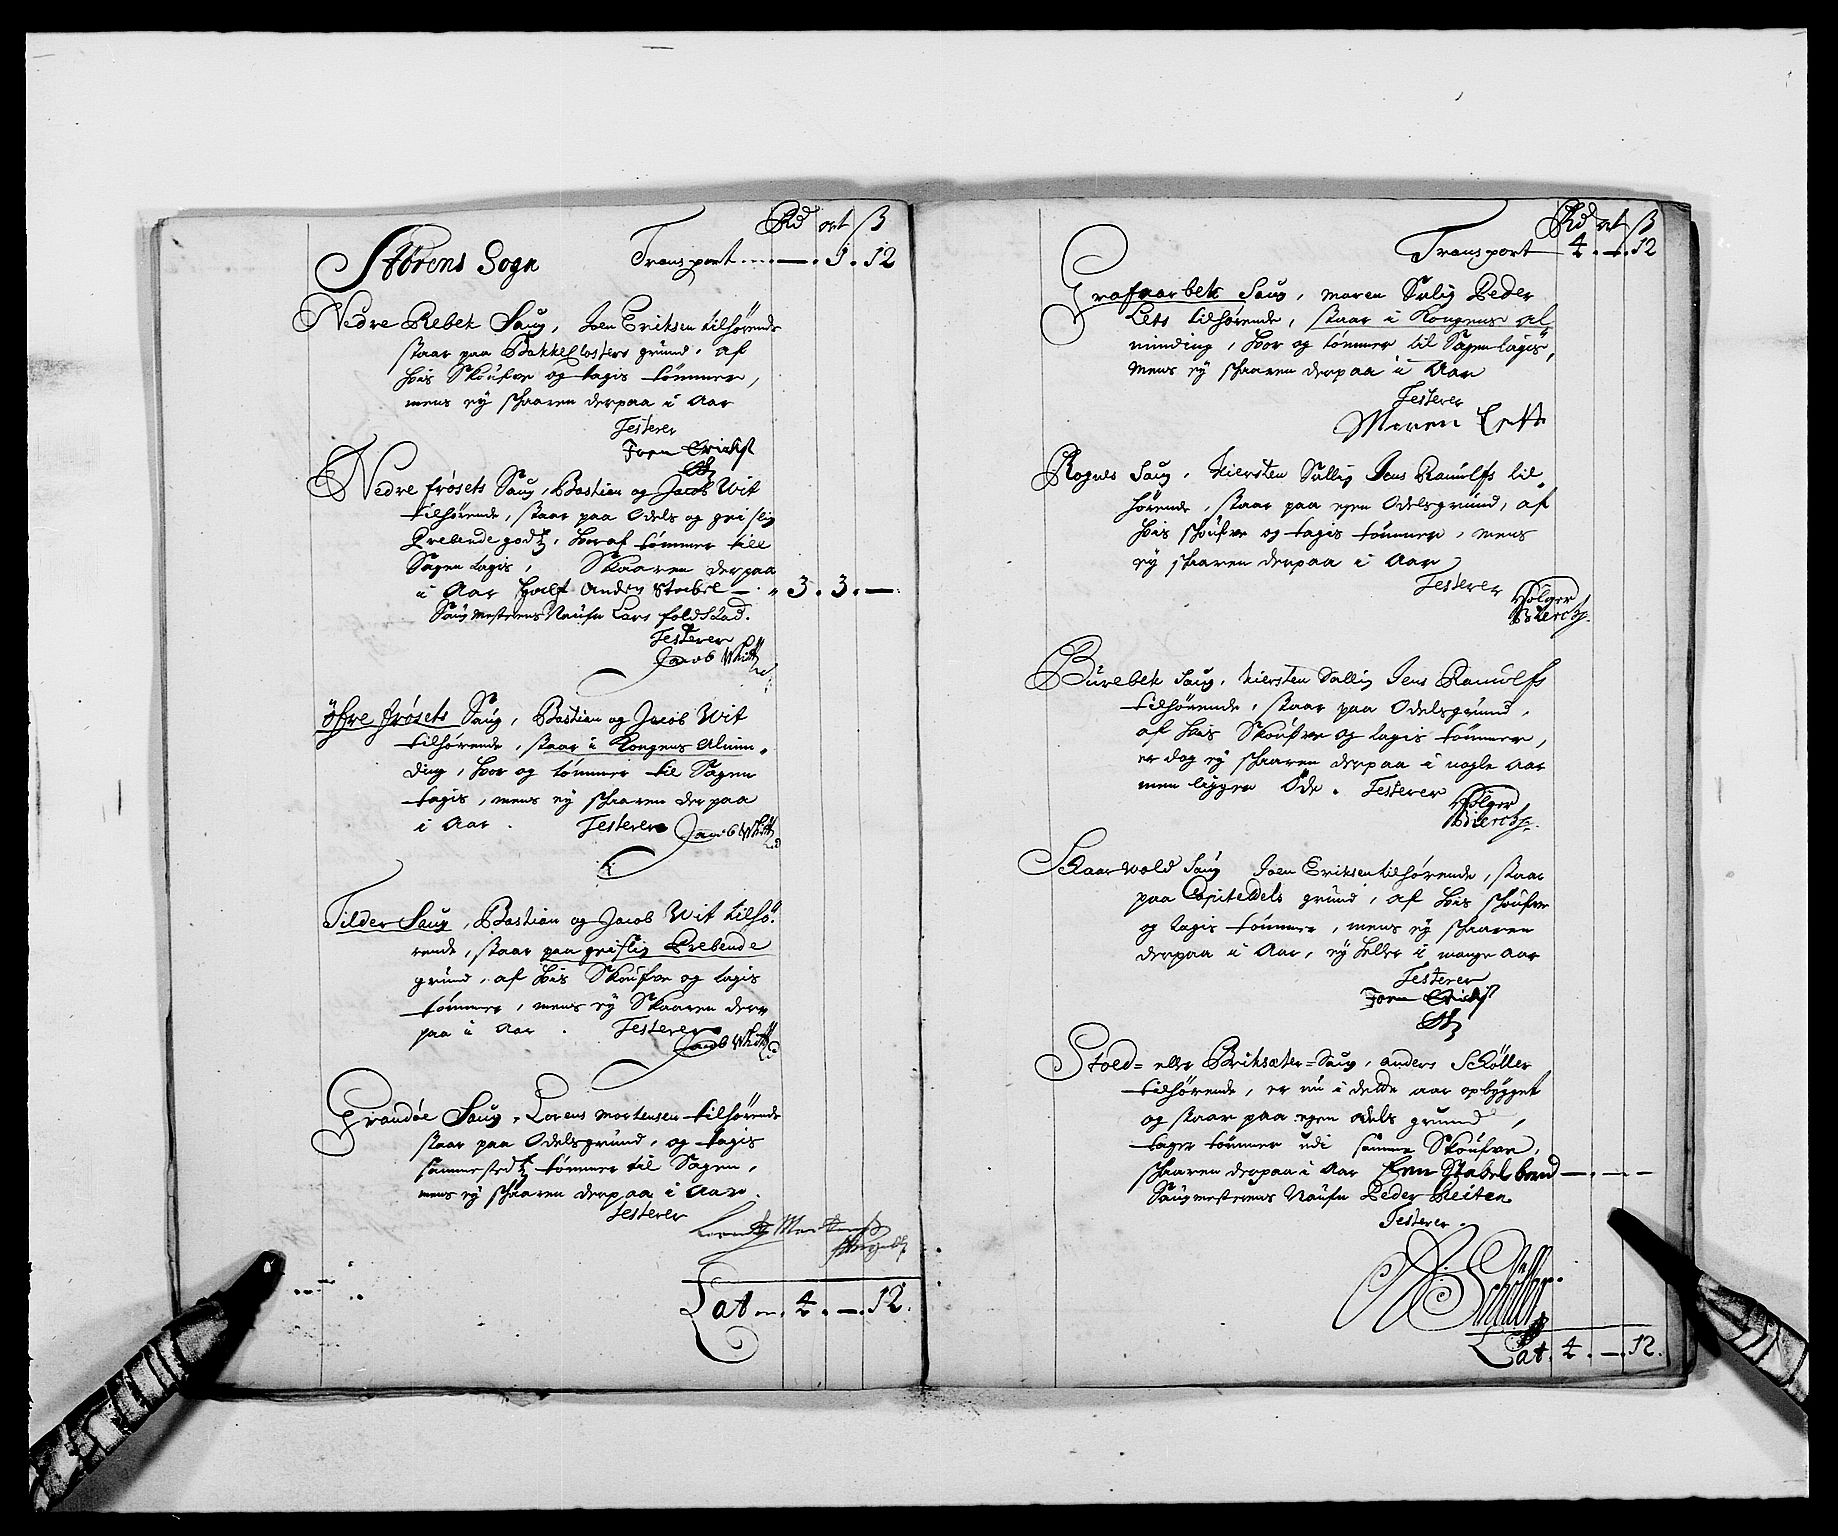 Rd ort ß
Størens Sogn Transport .... — . 1 . 12
Nedre Rebek Saug, Joen Eriksen tilhørende
staar paa Bakke Closters grund, af
hvis Skoufve og tagis tømmer,
mens ey skaaren derpaa i Aar
Testerer
Joen Erichs
Nedre frøsets Saug, Bastian og Jacob Wit
tilhørende, staar paa Odels og geistlig
Prebende godtz, hvoraf tømmer till
Sagen tagis, Skaaren derpaa
i Aar Half Anden Stabel — . 3 . 3 . —
Saugmesterens Naufn Lars foldstad.
Testerer
Jacob Whitt
øfre frøsets Saug, Bastian og Jacob Wit
tilhørende, staar i Kongens Almin-
ding, hvor og tømmer til Sagen
tagis, mens ey skaaren derpaa
i Aar . Testerer Jacob Whitt
Tilder Saug, Bastian og Jacob Wit tilhø-
rende, staar paa geistlig Prebende
grund, af hvis Skoufve og tagis
tømmer, mens ey Skaaren der
paa i Aar . Testerer
Jacob Whitt
Grandøe Saug, Lorens Mortensen tilhørende
staar paa Odelsgrund, og tagis
sammestedtz tømmer til Sagen,
mens ey skaaren derpaa i Aar.
Testerer
Lat . 4 . — . 12.
Rd ort ß
Transport 4 . — . 12
Grafvarbek Saug, maren Salig Peder
Lets tilhørende, staar i Kongens al-
minding, hvor og tømmer til Sagen tagis,
mens ey skaaren derpaa i Aar
Testerer
Maren Lett
Rognes Saug, Kiersten Sallig Jens Ramulfs til-
hørende, staar paa egen Odelsgrund, af
hvis skoufve og tagis tømmer, mens
ey skaaren derpaa i Aar
Testerer Holger
Burebek Saug, Kiersten Sallig Jens Ramulfs
tilhørende, staar paa Odelsgrund,
af hvis Skoufve og tagis tømmer,
er dog ey skaaren derpaa i nogle Aar
men ligger Øde. Testerer Holger
Skaarvold Saug Joen Eriksen tilhørende, staar
paa Capiteldels grund, af hvis skoufve
og tagis tømmer, mens ey skaaren
derpaa i Aar, ey heller i mange Aar
Testerer
Joen Erichs
Stoed- eller Briksæter-Saug, anders Schøller
tilhørende, er nu i dette aar opbygget
og staar paa egen odels grund,
tager tømmer udi samme Skoufve,
skaaren derpaa i Aar Een Stabel bord — . — . —
Saugmesterens Naufn Peder Reiten
Testerer.
A: Schøller
Lat. 4 . — . 12.